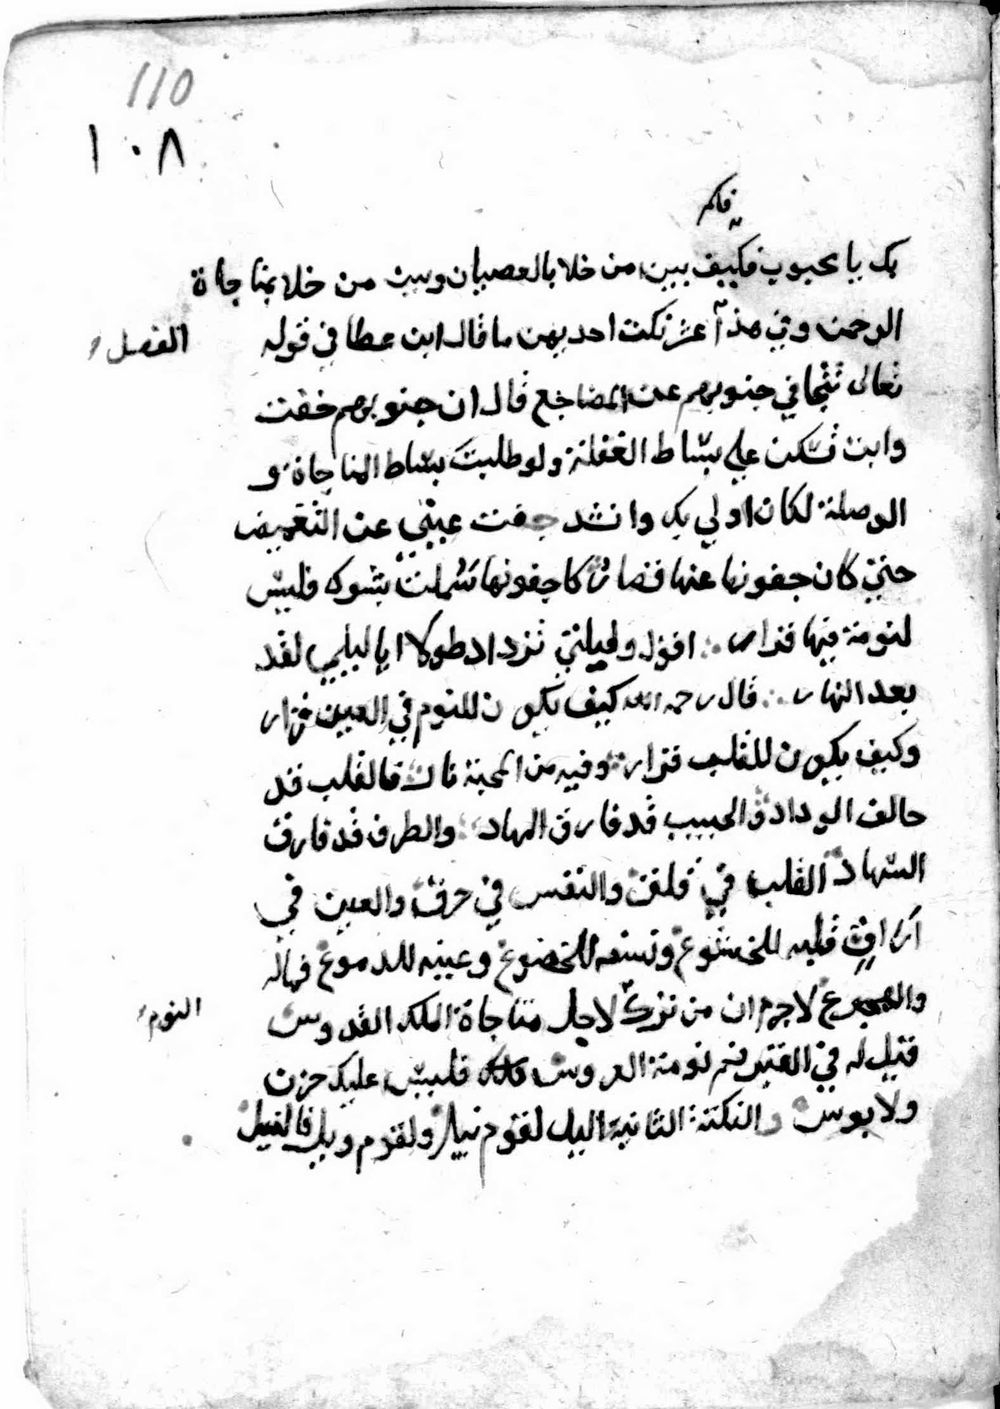 110
١٠٨
فكم
بك يا محبوب فكيف بين من خلا بالعصيان وبين من خلا بمناجاة
الرحمن وفي هذا عشر نكت احديهن ما قال ابن عطا في قوله
الفصل
تعالى تتجافي جنوبهم عن المضاجع قال ان جنوبهم خفت
وابت تسكن علي بساط الغفلة ولو طلبت بساط المناجاة و
الوصلة لكان اولي بك وانشد جفت عيني عن التغميض
حتي كان جفونها عنها قصار كا جفونها سملت بشوك فليس
لنومة فيها قرار اقول وليلتي تزداد طولا ايا ليلي لقد
بعد النهار قال رحمه الله كيف يكون للنوم في العين قرار
وكيف يكون للقلب قرار وفيه من المحبة نار فالقلب قد
حالف الوداد والحبيب قد فارق المهاد والطرف قد فارق
السهاد القلب في قلق والنفس في حرق والعين في
اراق قلبه للخشوع ونفسه للخضوع وعينه للدموع فماله
والهجوع لاجرم ان من ترك لاجل مناجاة الملك القدوس
النوم
قيل له في القبر نم نومة العروس فليس عليك حزن
ولا بوس والنكتة الثانية الليل لقوم نيل ولقوم ويل فالنيل